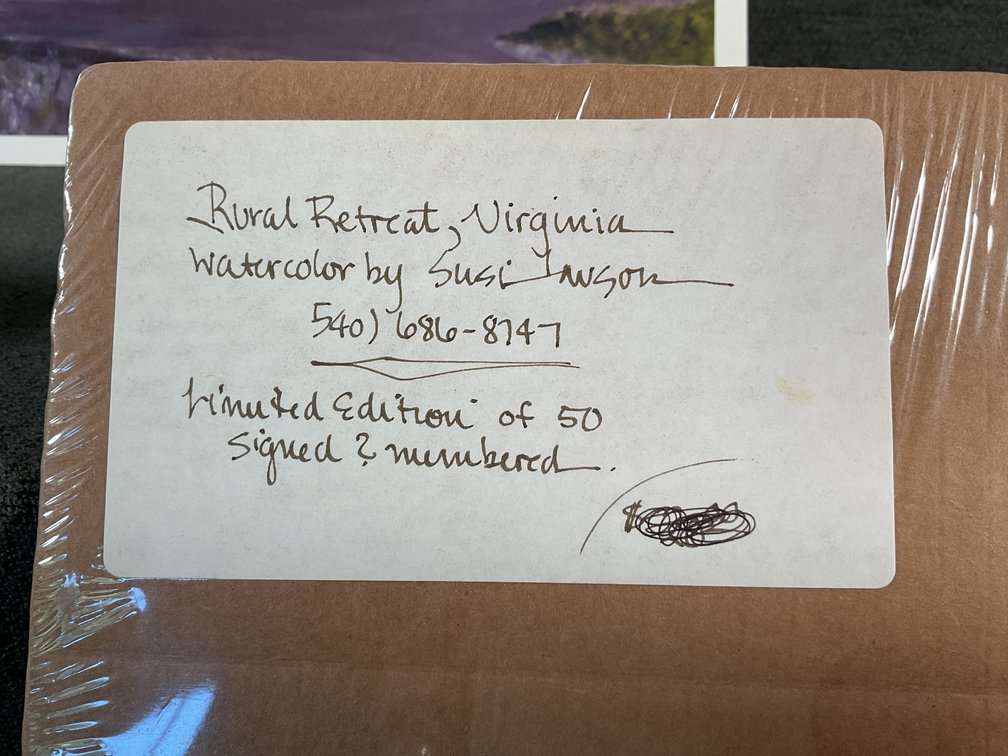 Rural Retreat, Virginia
Watercolor by Susi Lawson
540) 686-8747
Limited Edition of 50
signed & numbered.
$